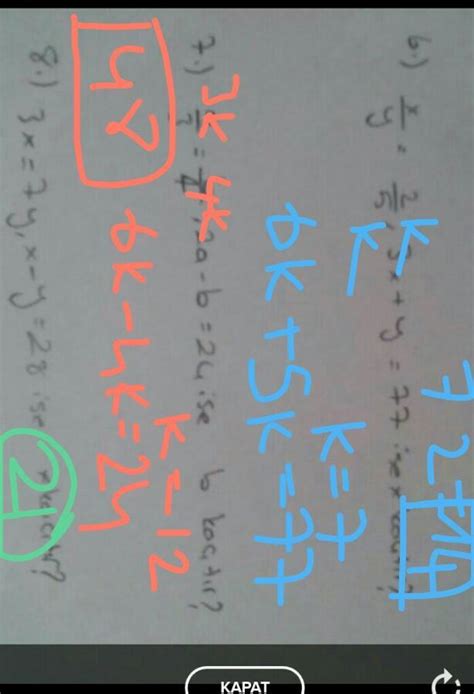 6.) x/y = 2/5, 3x + y = 77 ise x kaçtır?
k
k
7 2 14
6k + 5k = 77
k = 7
7.) = , 2a - b = 24 ise b kaçtır?
3k 4k
6k - 4k = 24
k = 12
48
8.) 3x = 7y, x - y = 28 ise
21
KAPAT